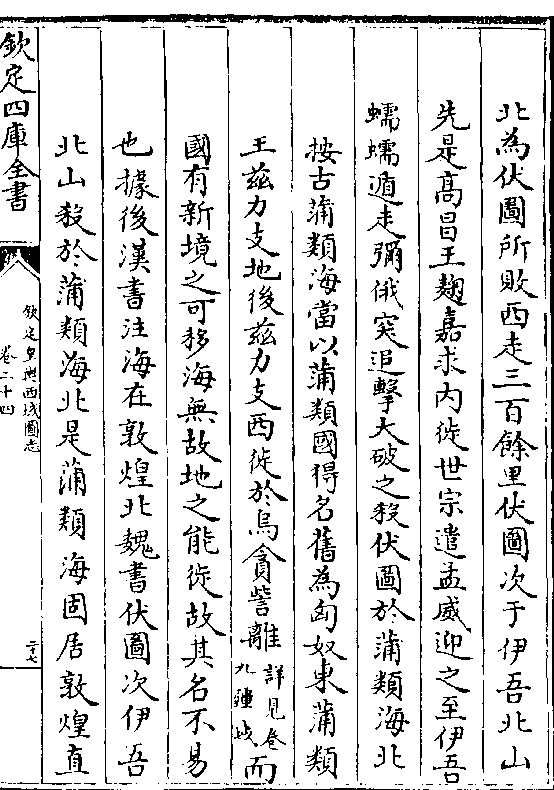 北為伏圖所敗西走三百餘里伏圖次于伊吾北山
先是高昌王麴嘉求內徙世宗遣孟威迎之至伊吾
蠕蠕遁走彌俄突追擊大破之殺伏圖於蒲類海北
按古蒲類海當以蒲類國得名舊為匈奴東蒲類
王兹力支地後兹力支西徙於烏貪訾離
詳見卷
九疆域
而
國有新境之可移海無故地之能徙故其名不易
也據後漢書注海在敦煌北魏書伏圖次伊吾
北山殺於蒲類海北是蒲類海固居敦煌直
欽定四庫全書
欽定皇輿西域圖志
卷二十四
二十七